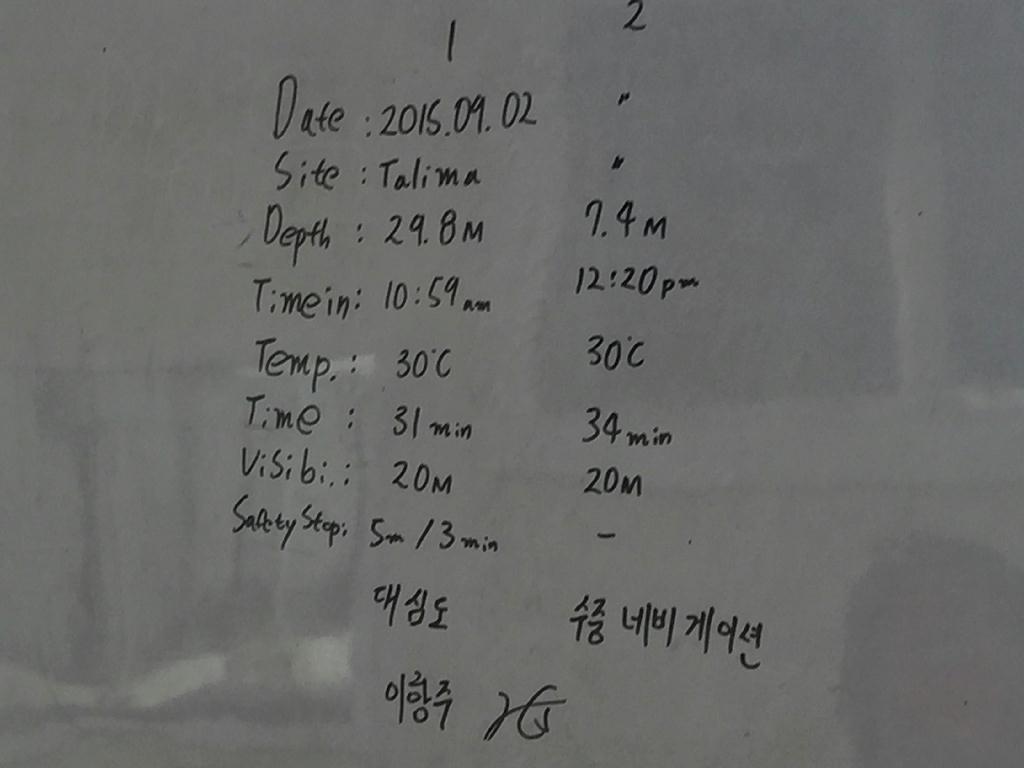 1 2
Date : 2015.09.02 〃
Site : Talima 〃
Depth : 29.8M 7.4M
Time in : 10:59am 12:20pm
Temp. : 30℃ 30℃
Time : 31min 34min
Visibi. : 20M 20M
Safety Stop : 5m / 3min -
대심도 수중 네비게이션
이항주